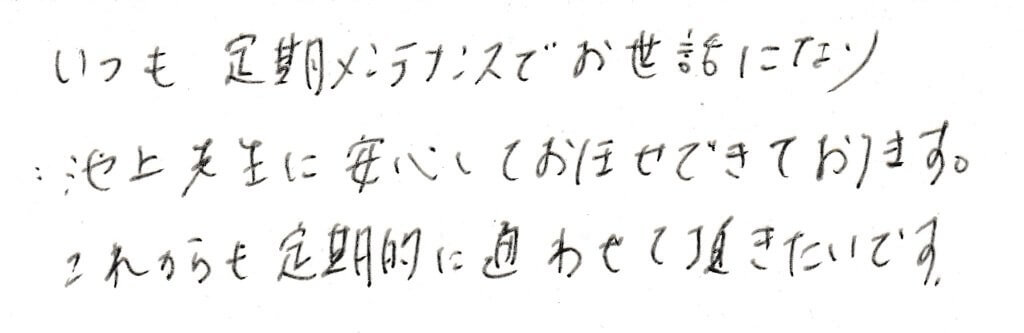 いつも 定期メンテナンスでお世話になり
池上先生に安心してお任せできております。
これからも定期的に通わせて頂きたいです.